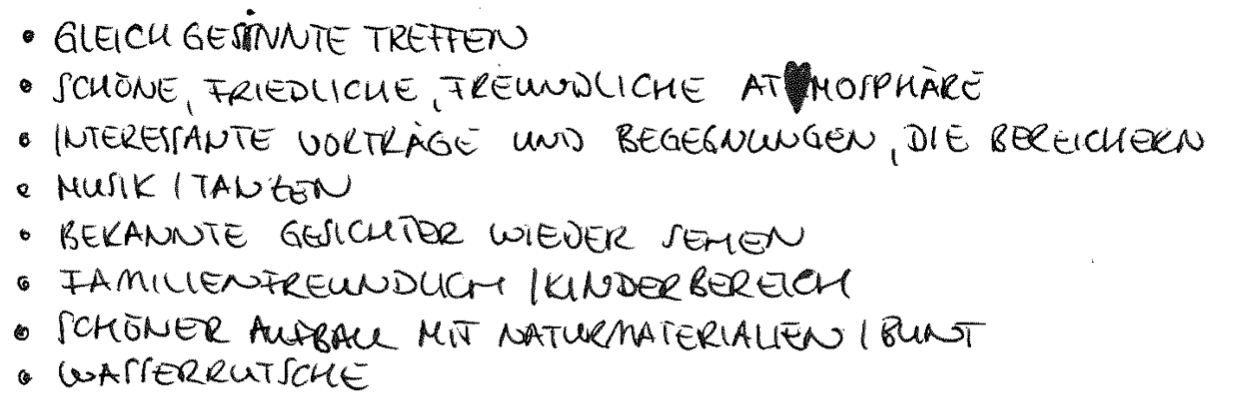 • GLEICH GESINNTE TREFFEN
• SCHÖNE, FRIEDLICHE, FREUNDLICHE ATMOSPHÄRE
• INTERESSANTE VORTRÄGE UND BEGEGNUNGEN, DIE BEREICHERN
• MUSIK / TANZEN
• BEKANNTE GESICHTER WIEDER SEHEN
• FAMILIENFREUNDLICH / KINDERBEREICH
• SCHÖNER AUFBAU MIT NATURMATERIALIEN / BUNT
• WASSERRUTSCHE